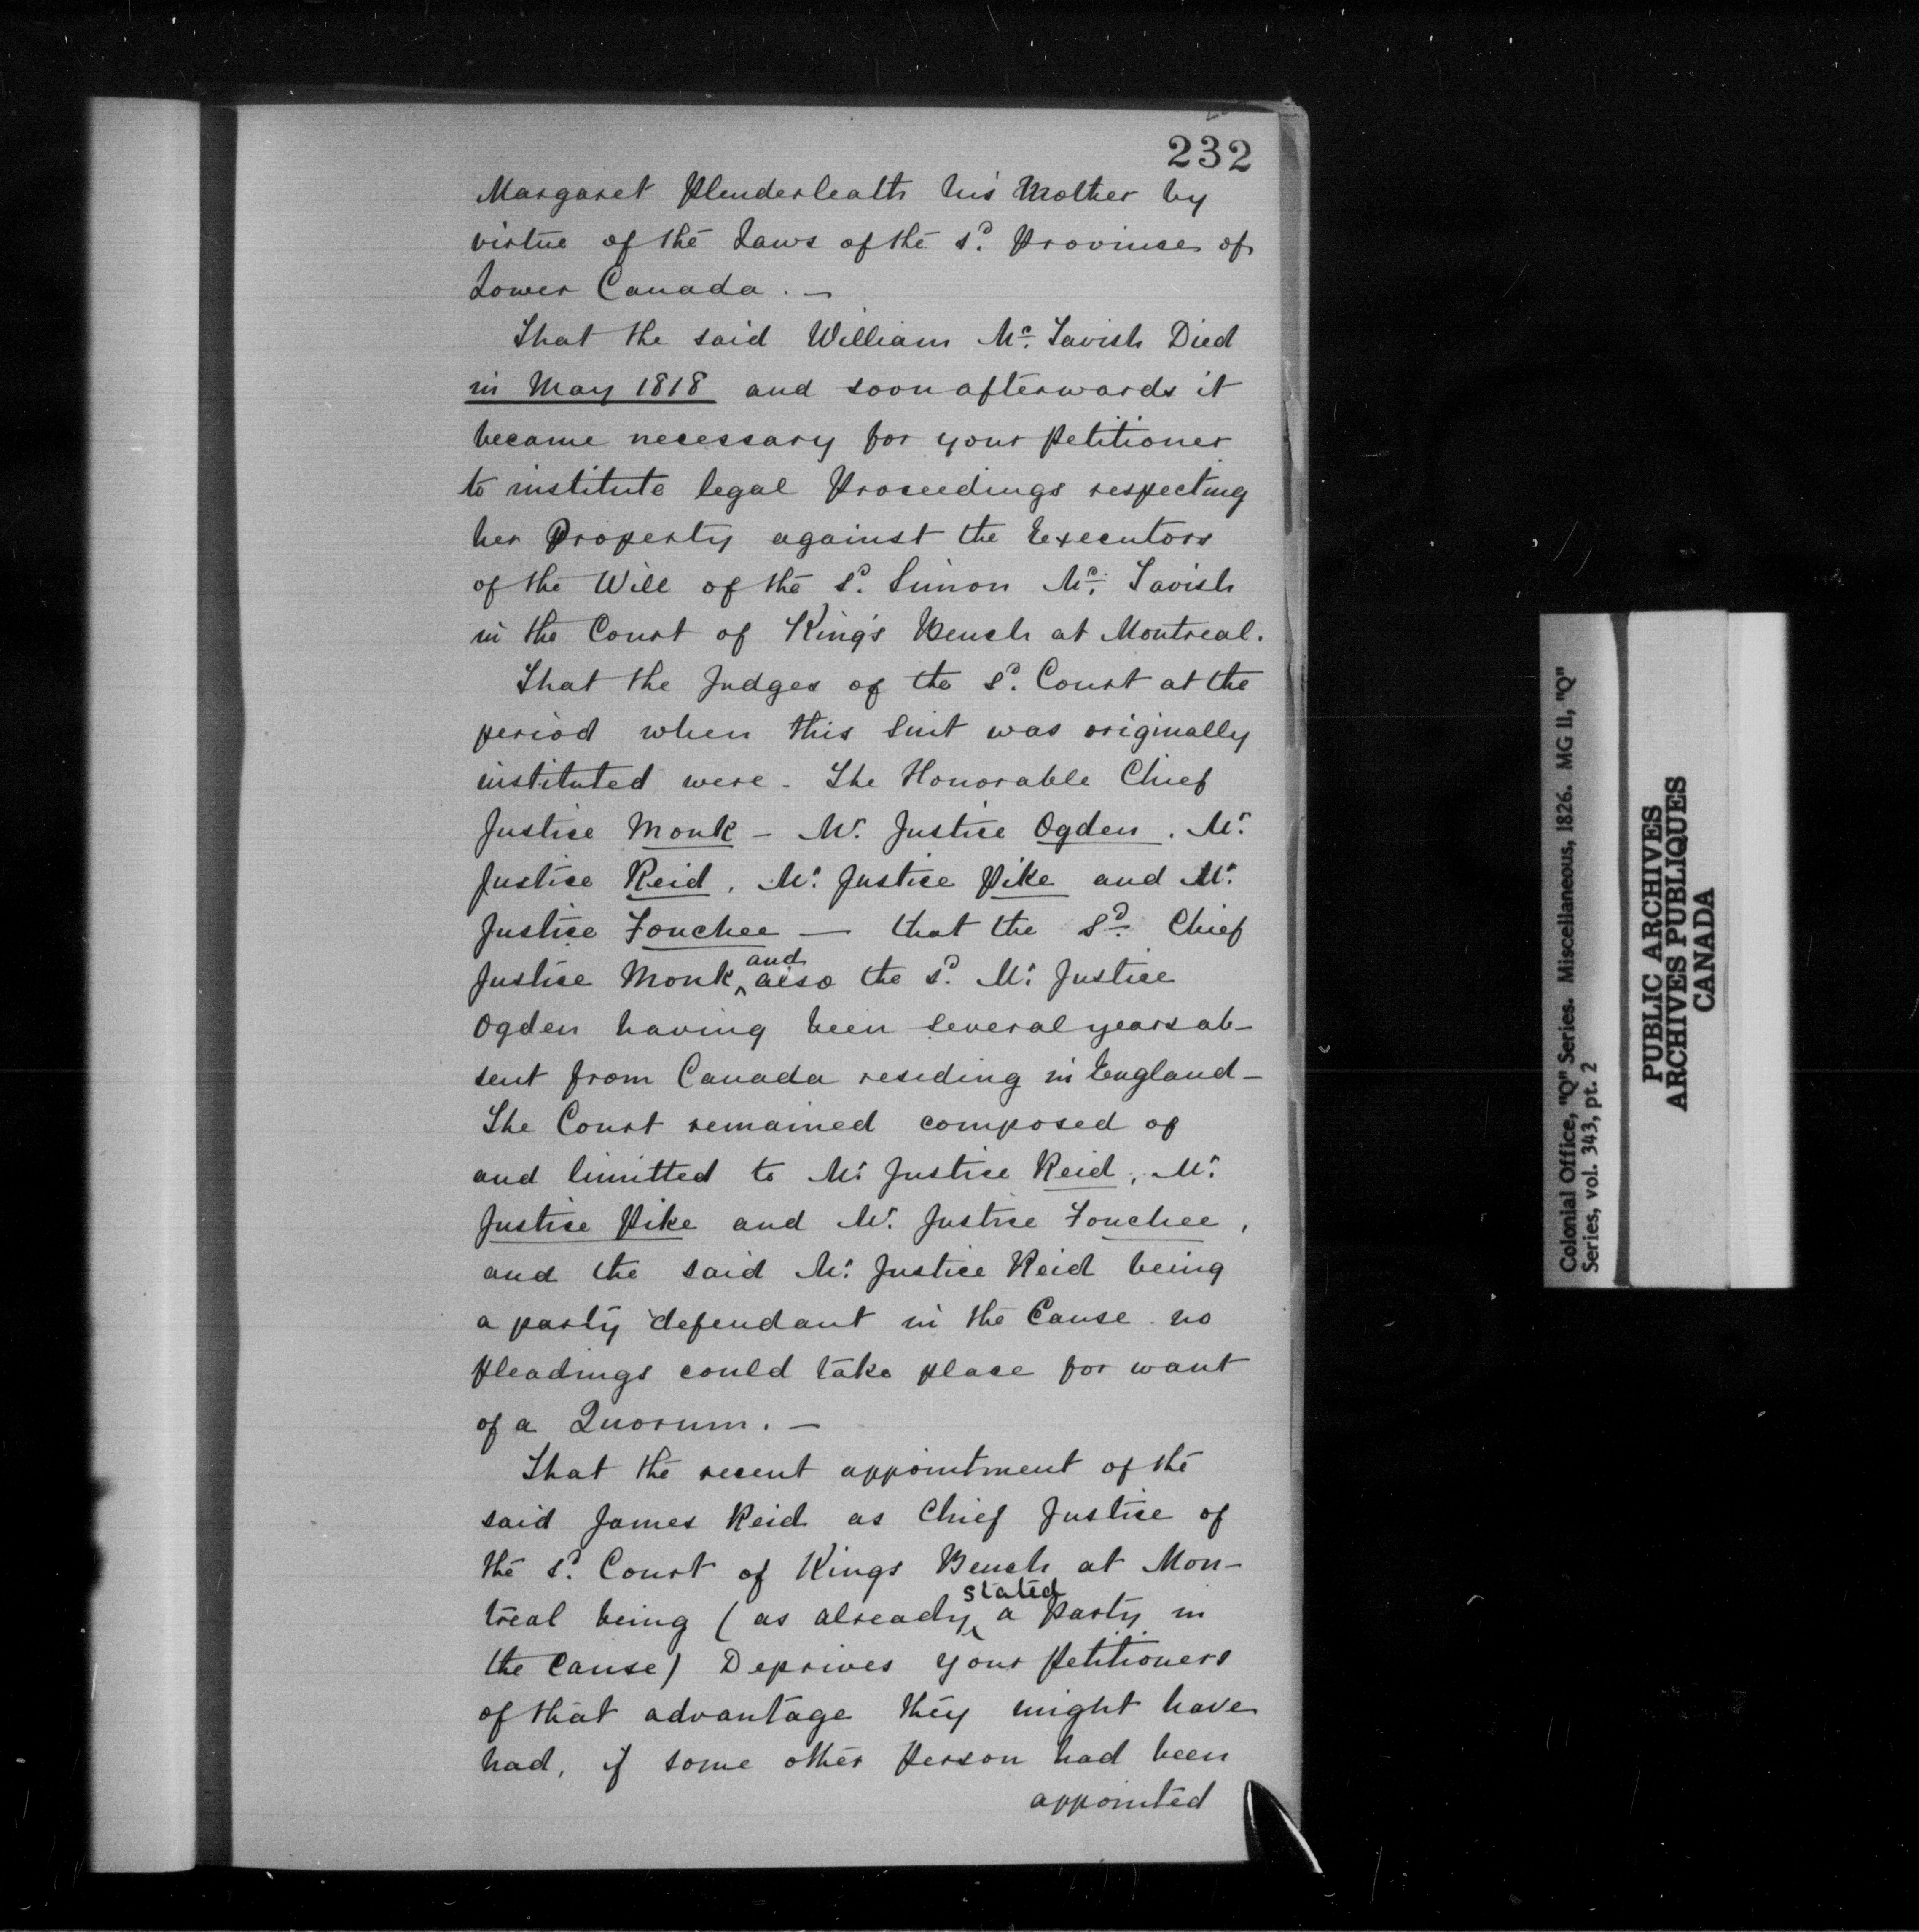 232
Margaret Plenderleath his Mother by
virtue of the Laws of the sd. Province of
Lower Canada. —
That the said William Mc. Tavish Died
in May 1818 and soon afterwards it
became necessary for your Petitioner
to institute legal Proceedings respecting
her Property against the Executors
of the Will of the sd. Simon Mc. Tavish
in the Court of King's Bench at Montreal.
That the Judges of the sd. Court at the
period when this Suit was originally
instituted were - The Honorable Chief
Justice Monk - Mr. Justice Ogden, Mr.
Justice Reid, Mr. Justice Pike and Mr.
Justice Fouchee — that the Sd. Chief
Justice Monk, and also the sd. Mr. Justice
Ogden having been several years ab-
sent from Canada residing in England -
The Court remained composed of
and limitted to Mr. Justice Reid, Mr.
Justice Pike and Mr. Justice Fouchee,
and the said Mr. Justice Reid being
a party defendant in the Cause no
pleadings could take place for want
of a Quorum. —
That the recent appointment of the
said James Reid as Chief Justice of
the sd. Court of Kings Bench at Mon-
treal being (as already stated a Party in
the Cause) Deprives your Petitioners
of that advantage they might have
had, if some other Person had been
appointed
Colonial Office, "Q" Series. Miscellaneous, 1826. MG 11, "Q"
Series, vol. 343, pt. 2
PUBLIC ARCHIVES
ARCHIVES PUBLIQUES
CANADA